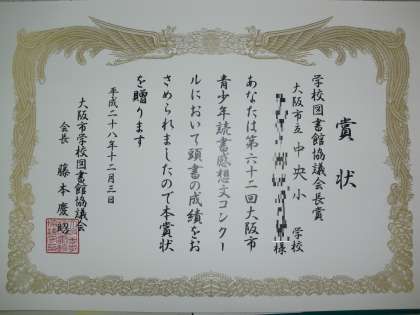 賞状
学校図書館協議会長賞
大阪市立中央小学校
様
あなたは第六十二回大阪市
青少年読書感想文コンクー
ルにおいて頭書の成績をお
さめられましたので本賞状
を贈ります
平成二十八年十二月三日
大阪市学校図書館協議会
会長 藤本慶昭